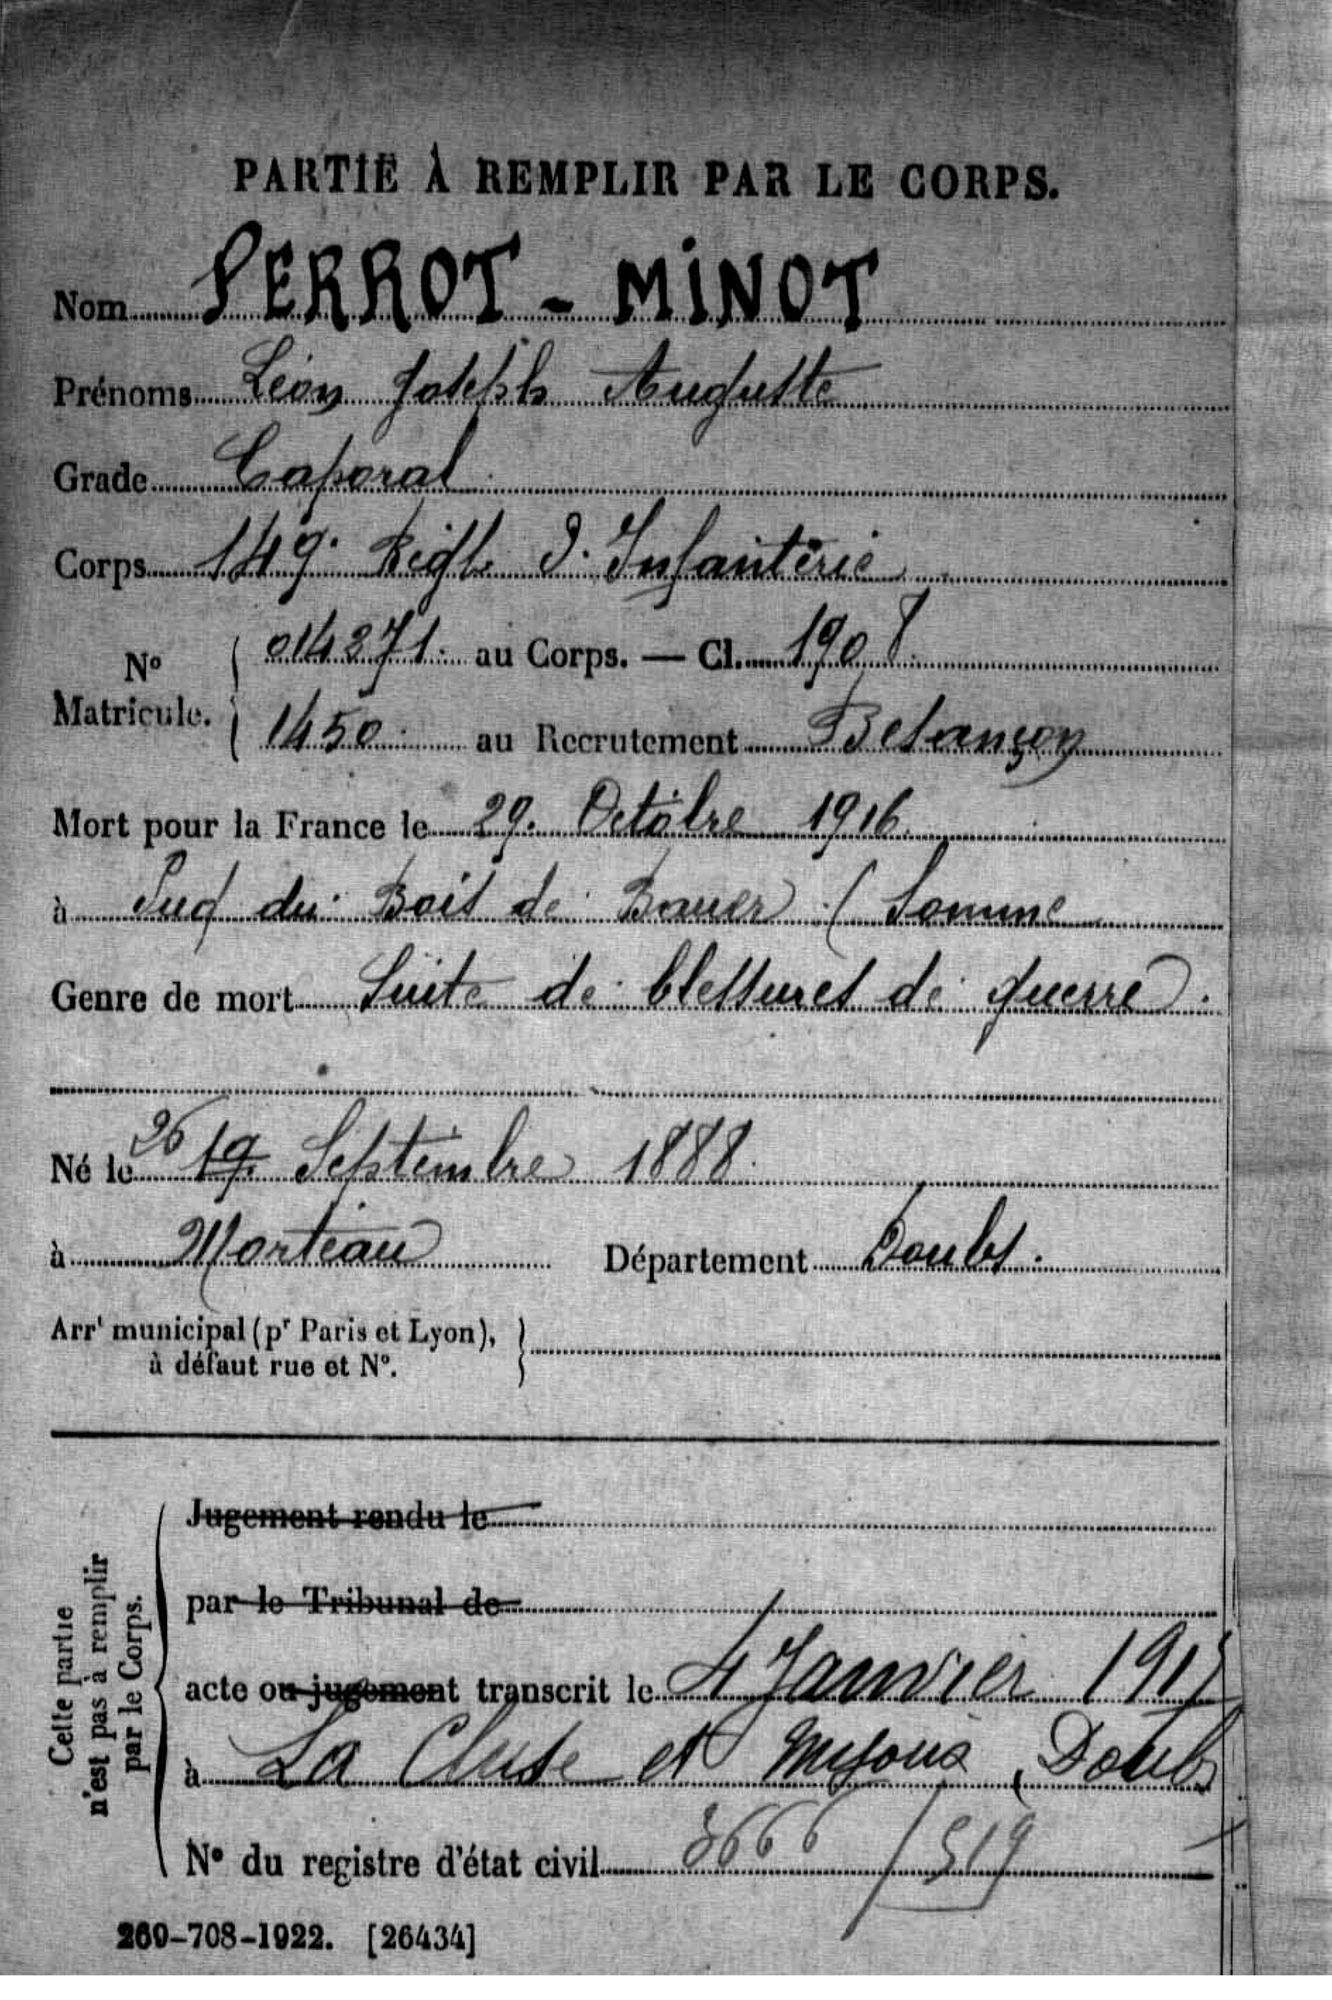 PARTIE À REMPLIR PAR LE CORPS.
Nom PERROT - MINOT
Prénoms Léon Joseph Auguste
Grade Caporal
Corps 149e Régt d'Infanterie
No Matricule. { 014871 au Corps. — Cl. 1908
1450 au Recrutement Besançon
Mort pour la France le 29 Octobre 1916
à Sud du Bois de Baver (Somme
Genre de mort Suite de blessures de guerre.
Né le 26 19 Septembre 1888
à Morteau Département Doubs.
Arrt municipal (pr Paris et Lyon),
à défaut rue et No.
Cette partie
n'est pas à remplir
par le Corps.
Jugement rendu le
par le Tribunal de
acte ou jugement transcrit le 4 Janvier 1917
à La Cluse et Mijoux, Doubs
No du registre d'état civil 3666/519
260-708-1922. [26434]